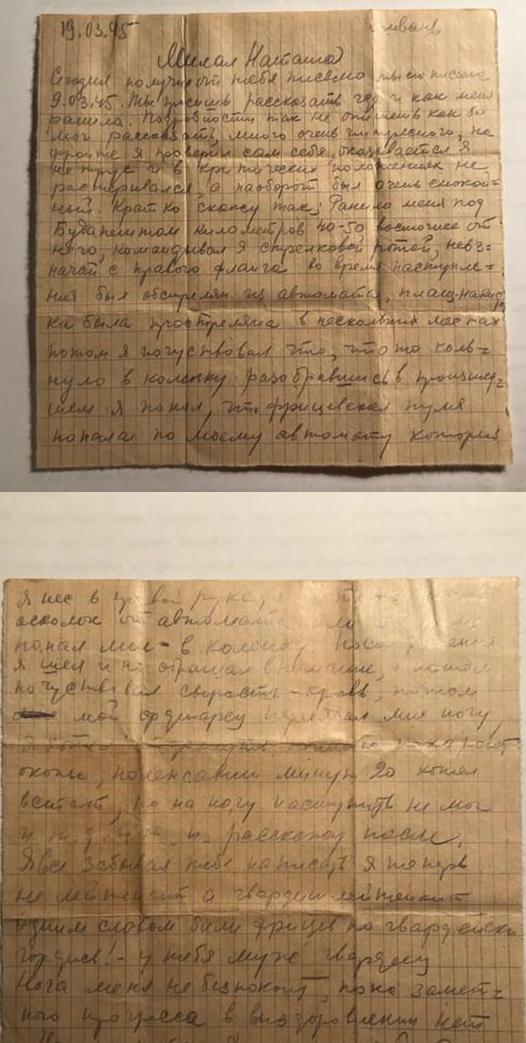 19.03.45
Милая Наташа
Сегодня получил от тебя письмо
9.03.45. Ты просишь рассказать где и как меня
ранило. Подробности так не опишешь как бы
мог рассказать, много очень на
фронте я проверил сам себя, оказывается я
не трус и в критических положениях не
растеривался а наоборот был очень спокой-
ный. Кратко скажу так: Ранило меня под
Будапештом километров 40-50 восточнее от
него, командывал я стрелковой ротой, невз-
начай с правого фланга во время наступле-
ния был обстрелян из автомата, плащ-накид
ка была прострелена в нескольких местах
потом я почуствовал что, что то коль-
нуло в коленку разобравшись в происшед-
шем я понял, что фрицевская пуля
попала по моему автомату который
Я нес в правой руке,
осколок от автомата
попал мне в коленку
я шел и не обращал внимание, а потом
почуствовал сырость - кровь, потом
мой ординарец перевязал мне ногу,
окопы, полежавши минут 20 хотел
встать, но на ногу наступить не мог
расскажу после.
Я все забывал тебе написать я теперь
не лейтенант а гвардии лейтенант
Одним словом били фрицев по гвардейски
гордись! - у тебя муж гвардеец
Нога меня не беспокоит, пока замет-
ного прогресса в выздоровлении нет